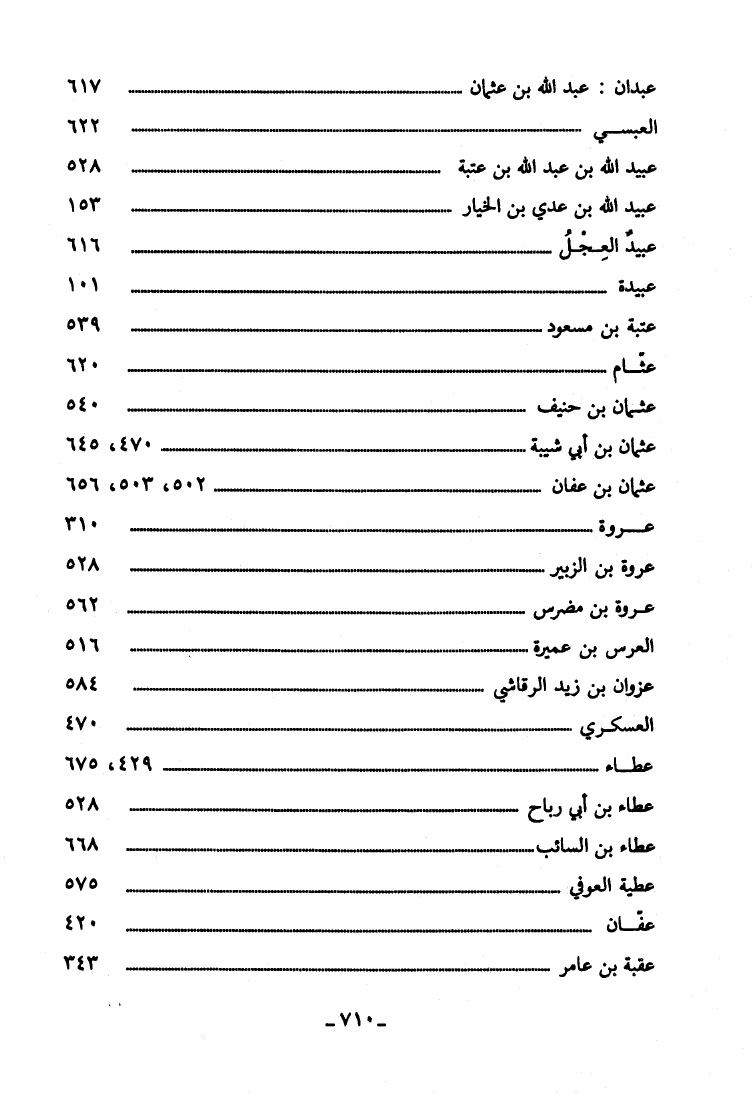 عبدان : عبد الله بن عثمان ٦١٧
العبسـي ٦٢٢
عبيد الله بن عبد الله بن عتبة ٥٢٨
عبيد الله بن عدي بن الخيار ١٥٣
عبيدٌ العِـجْـلُ ٦١٦
عبيدة ١٠١
عتبة بن مسعود ٥٣٩
عثّـام ٦٢٠
عثـمان بن حنيف ٥٤٠
عثمان بن أبي شيبة ٤٧٠، ٦٤٥
عثمان بن عفان ٥٠٢، ٥٠٣، ٦٥٦
عـروة ٣١٠
عروة بن الزبير ٥٢٨
عـروة بن مضرس ٥٦٢
العرس بن عميرة ٥١٦
عزوان بن زيد الرقاشي ٥٨٤
العسكـري ٤٧٠
عطـاء ٤٢٩، ٦٧٥
عطاء بن أبي رباح ٥٢٨
عطاء بن السائب ٦٦٨
عطية العوفي ٥٧٥
عفّـان ٤٢٠
عقبة بن عامر ٣٤٣
ـ ٧١٠ ـ